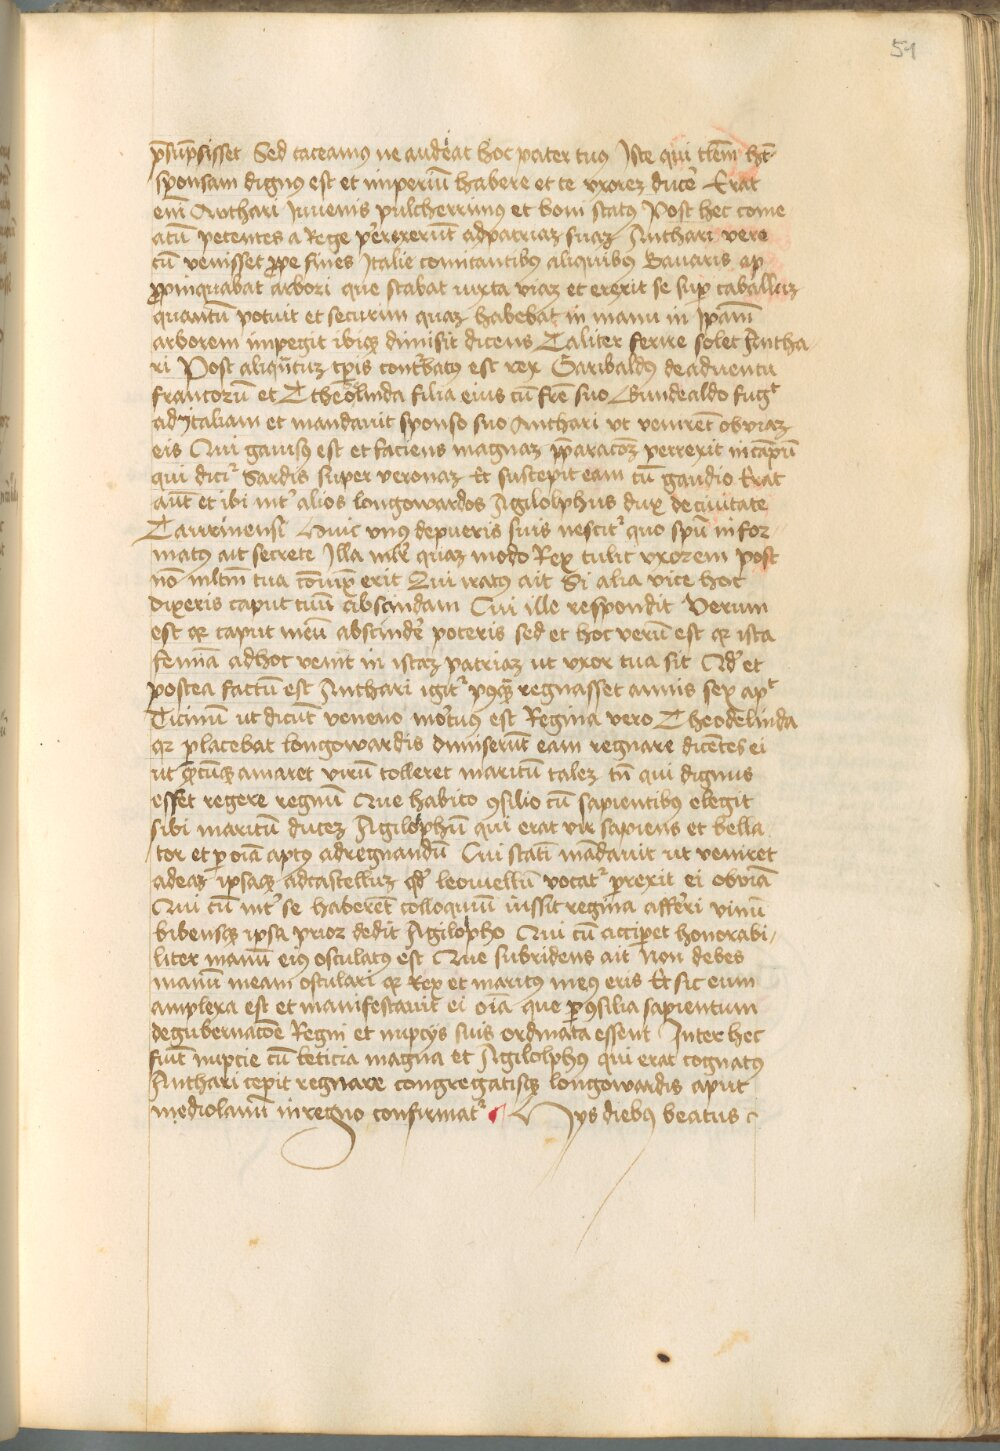 51
p̄sūpsisset Sed taceamꝰ ne audeat hoc pater tuꝰ Iste qui tl̄em ht̄
sponsam dignꝰ est et imperiū habere et te vxoreꝫ duce᷑ Erat
em̄ Anthari Iuuenis pulcherrimꝰ et boni statꝰ Post hec come
atū petentes a Rege perrexerūt ad patriaꝫ suaꝫ Anthari vero
cū venisset ꝓpe fines Italie comitantibꝰ aliquibꝰ Bauaris ap
ꝓpinquabat arbori que stabat iuxta viaꝫ et erexit se suꝑ caballuꝫ
quantū potuit et securim quaꝫ habebat in manu in ip̄am
arborem impegit ibiqꝫ dimisit dicens Taliter ferire solet Antha
ri Post aliqn̄tuꝫ tꝑis conturbatꝰ est rex Garibaldꝰ de aduentu
francorū et Theolinda filia eius cū fr̄e suo Gundealdo fugt
ad ytaliam et mandauit sponso suo Anthari vt venirēt obuiaꝫ
eis Qui gauisꝰ est et faciens magnaꝫ p̄paracōꝫ perrexit in cāpū
qui dicit᷑ Sardis super veronaꝫ Et suscepit eam cū gaudio Erat
aūt et ibi int᷑ alios longowardos Agilolphus dux de ciuitate
Taurinensi Huic vnus de pueris suis nescit᷑ quo spū infor
matꝰ ait secrete Illa mlr̄ quaꝫ modo Rex tulit vxorem post
nō mltm̄ tua cōiux erit Qui iratꝰ ait Si alia vice hoc
dixeris caput tuū abscindam Cui ille respondit Verum
est qꝛ caput meū abscinde᷑ poteris sed et hoc verū est qꝛ ista
femīa ad hoc venit in istaꝫ patriaꝫ ut vxor tua sit Qd̄ et
postea factū est Anthari igit᷑ postqꝫ regnasset annis sex apt
Ticinū ut dicūt veneno mortuꝰ est Regina vero Theodelinda
qꝛ placebat longowardis dimiserūt eam regnare dicētes ei
ut q̄tūqꝫ amaret virū tolleret maritū taleꝫ tn̄ qui dignus
esset regere regnū Que habito ꝯsilio cū sapientibꝰ elegit
sibi maritū duceꝫ Agilolphū qui erat vir sapiens et bella
tor et ꝑ oīa aptꝰ ad regnandū Cui statī mādauit ut veniret
ad eaꝫ ipsaqꝫ ad castelluꝫ qd̄ leomellū vocat᷑ ꝑrexit ei obuiā
Qui cū int᷑ se haberēt colloquiū iussit regina affe᷑ri vinū
bibensqꝫ ipsa prior dedit Agilolpho Qui cū acciꝑet honorabi
liter manū eiꝰ osculatꝰ est Que subridens ait Non debes
manū meam osculari qꝛ Rex et maritꝰ meꝰ eris Et sic eum
amplexa est et manifestauit ei oīa que ꝑ ꝯsilia sapientum
de gubernacōe Regni et nupcijs suis ordinata essent Inter hec
fiūt nupcie cū leticia magna et Agilolphꝰ qui erat cognatꝰ
Anthari cepit regnare congregatisqꝫ longowardis aput
mediolanū in regno confirmat᷑ Hijs diebꝰ beatus